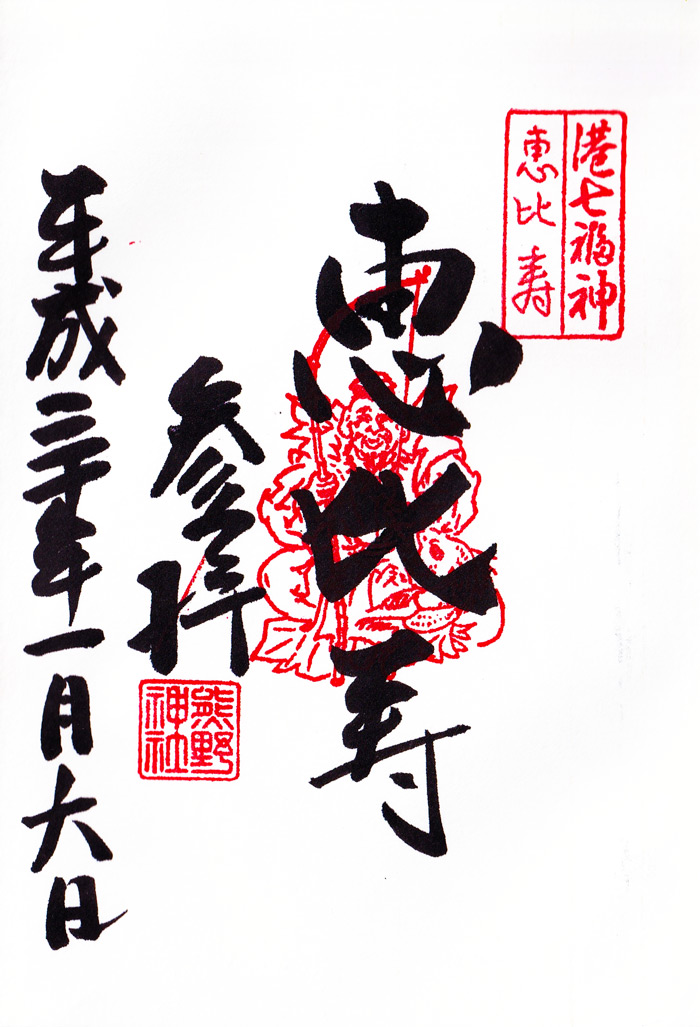 港七福神
恵比寿
恵比寿
参拝
熊野
神社
平成三十年一月六日